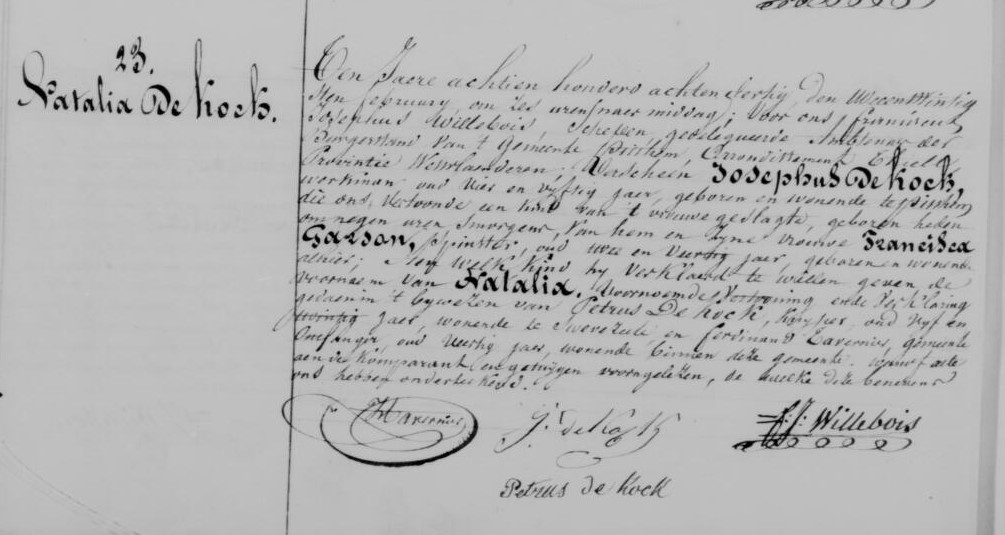 23.
Natalia De Kock.
Den Jaere achtien honderd achtendertig, den
sten february, om zes uren naer middag; Voor ons, franciscus,
Josephus Willebois, Schepen, gedelegueerde Ambtenaer der
Burgerstand van 't Gemeente Pitthem, Arrondissement
Provintie Westvlaenderen; Verscheen Josephus De Kock,
werkman oud vier en vyftig jaer, geboren en wonende te pitthem,
die ons vertoonde een kind van 't vrouwe geslagte, geboren heden
om negen uren smorgens, van hem en zyne vrouwe Francisca
Garzon, spinster, oud twee en veertig jaer geboren en wonende
alhier; aen welk kind hy verklaerd te willen geven de
voornaem van Natalia. Voornoemde Vertooning ende Verklaring
gedaen in 't bywezen van Petrus De kock, kuyper, oud vyf en
twintig jaer, wonende te Swevezeele, en ferdinand Tavernier, gemeente
Ontfanger, oud veertig jaer, wonende binnen deze gemeente.
aen de Komparant en getuygen voorngelezen, de welke deze benevens
ons hebben onderteekend.
J: de Kock
F: J: Willebois
Petrus de Kock